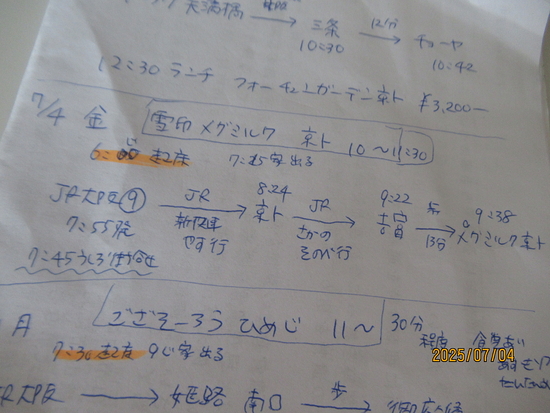 天満橋 → 三条 12分 → チョーヤ
10:30 10:42
12:30 ランチ フォーチュンガーデン京ト ¥3,200-
7/4 金 雪印メグミルク 京ト 10〜11:30
6:00 起床 7:15 家出る
JR大阪⑨ JR → 8:24 京ト JR → 9:22 歩 → 9:38 メグミルク京ト
7:55発 新快速 13分
やす行
7:45
月 ござそーろう ひめじ 11〜 30分
程度
7:30 起床 9じ家出る
2025/07/04
JR大阪 → 姫路 南口 歩 →